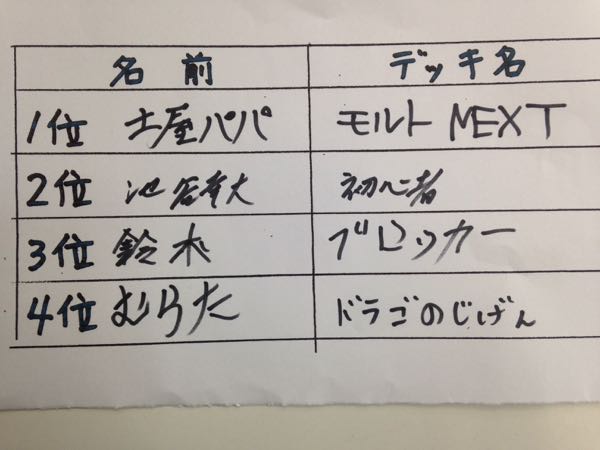 名前 デッキ名
1位 土屋パパ モルトNEXT
2位 池谷 初心者
3位 鈴木 ブロッカー
4位 むらた ドラゴのじげん